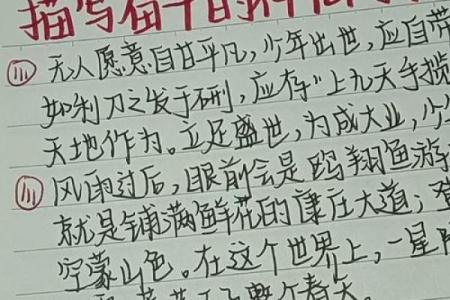 描写奋斗的
无人愿意自甘平凡,少年出世,应自带
如利刀之发于硎,应存"上九天手揽
天地作为。立足盛世,为成大业,少
风雨过后,眼前会是鸥翔鱼游
就是铺满鲜花的康庄大道;登
空蒙山色。在这个世界上,一星
整个春天